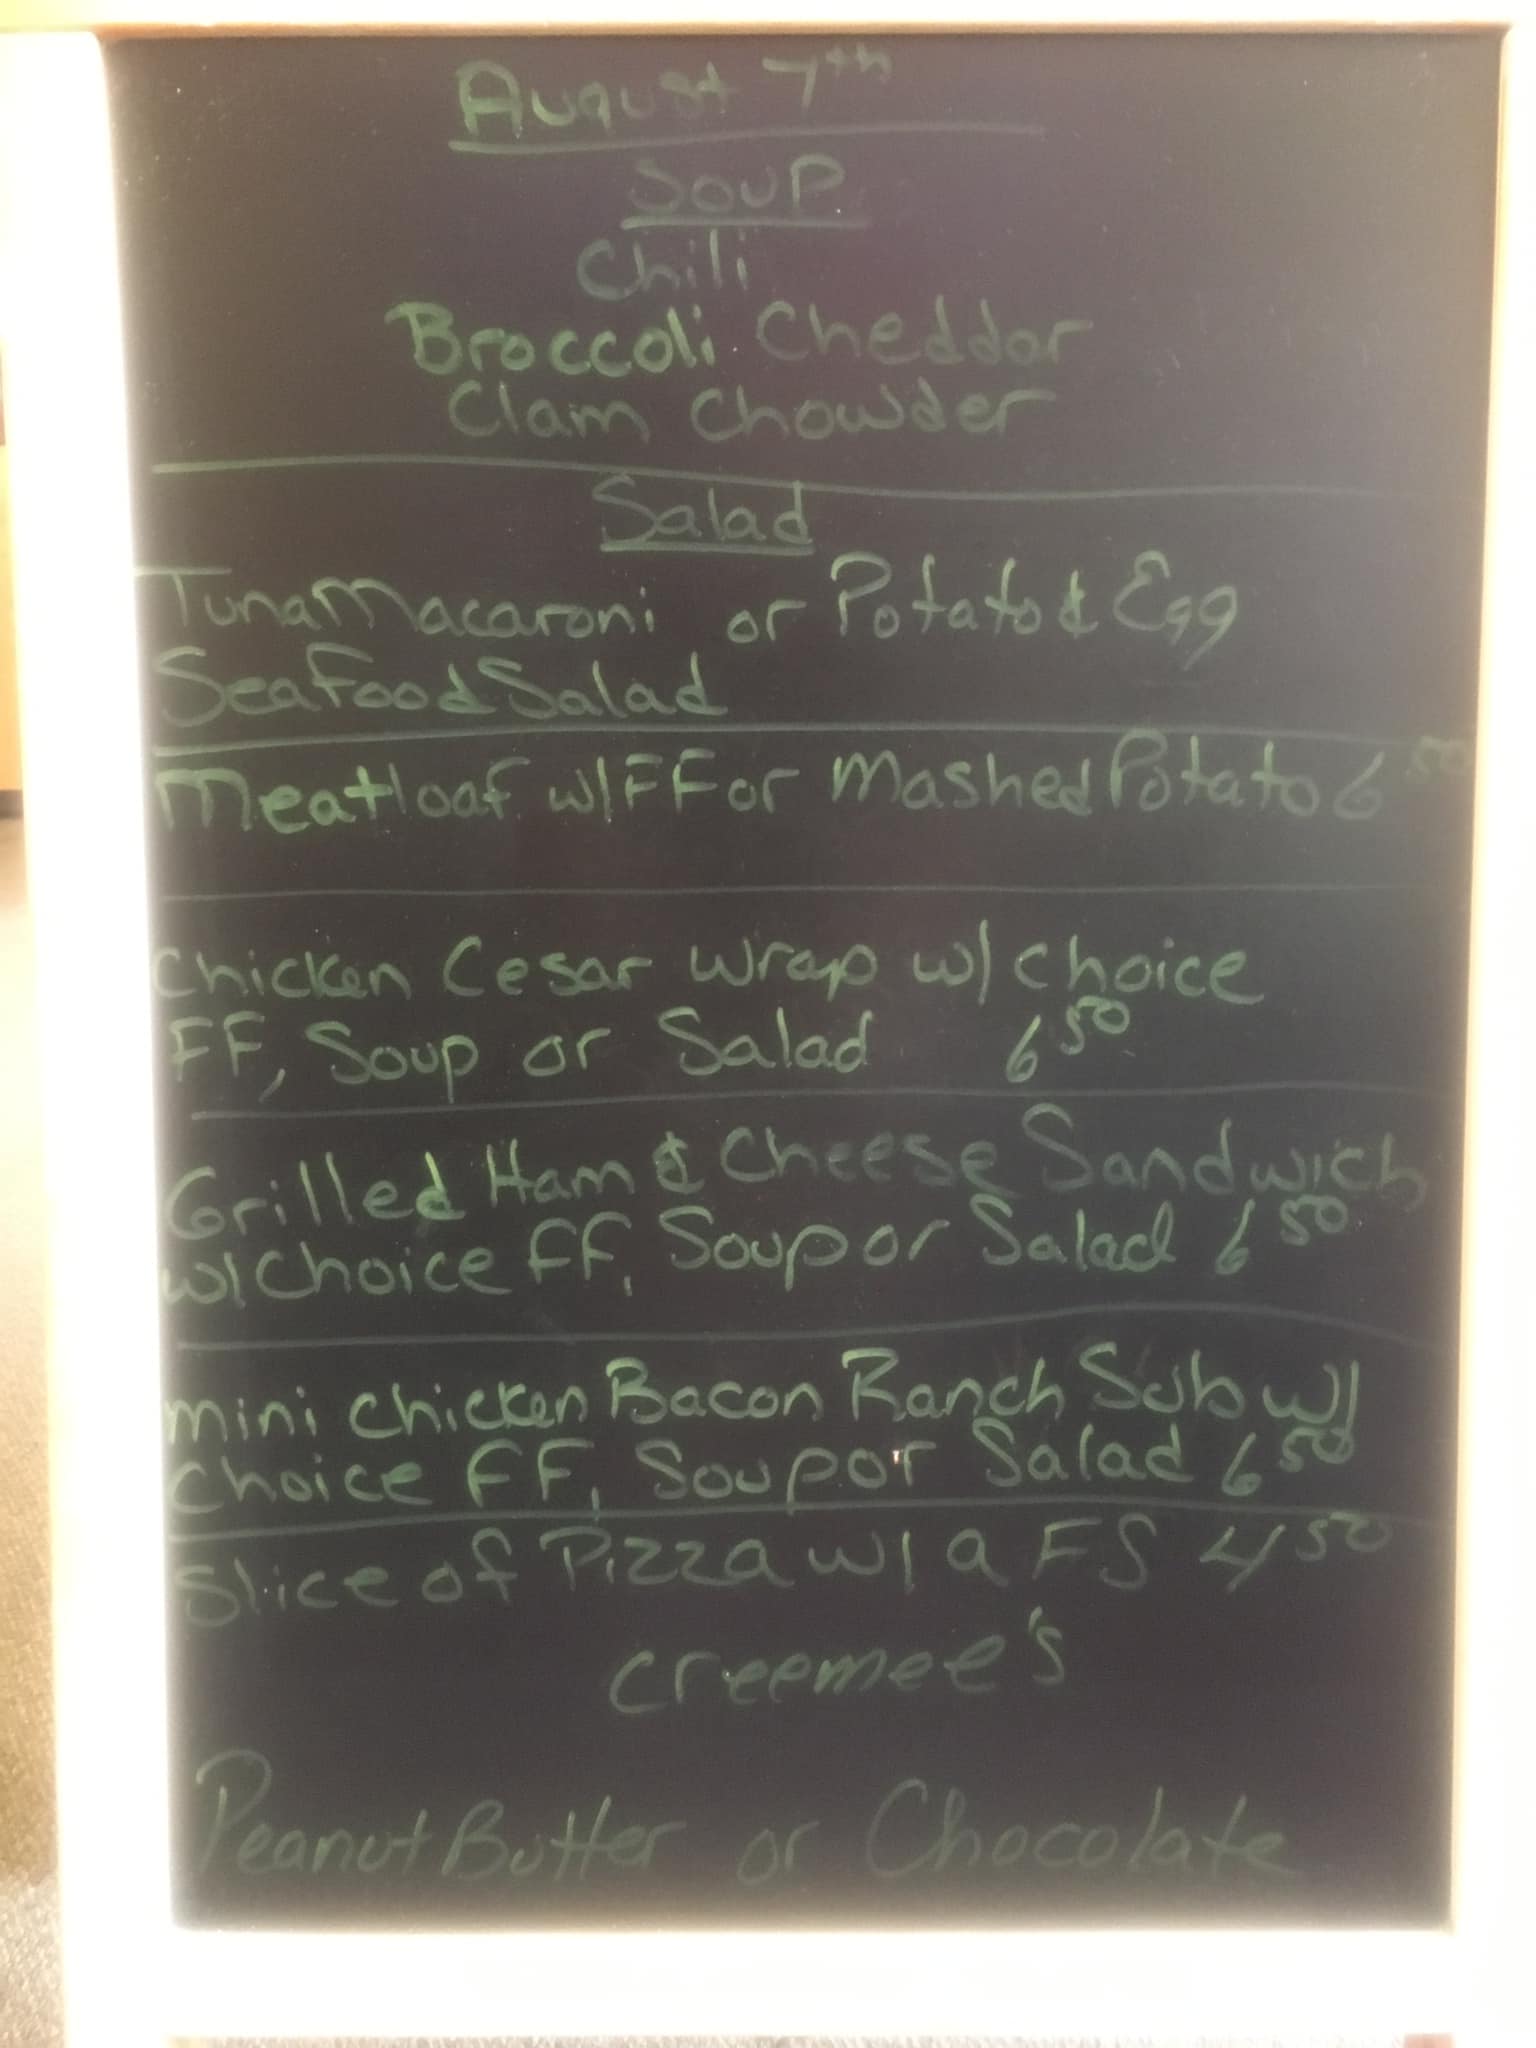 August 7th
Soup
Chili
Broccoli Cheddar
Clam Chowder
Salad
Tuna Macaroni or Potato & Egg
Seafood Salad
Meatloaf w/ FF or Mashed Potato 6.50
Chicken Cesar Wrap w/ choice
FF, Soup or Salad 6 50
Grilled Ham & Cheese Sandwich
w/ Choice FF, Soup or Salad 6 50
Mini Chicken Bacon Ranch Sub w/
Choice FF, Soup or Salad 6 50
Slice of Pizza w/ a FS 4 50
Creemee's
Peanut Butter or Chocolate